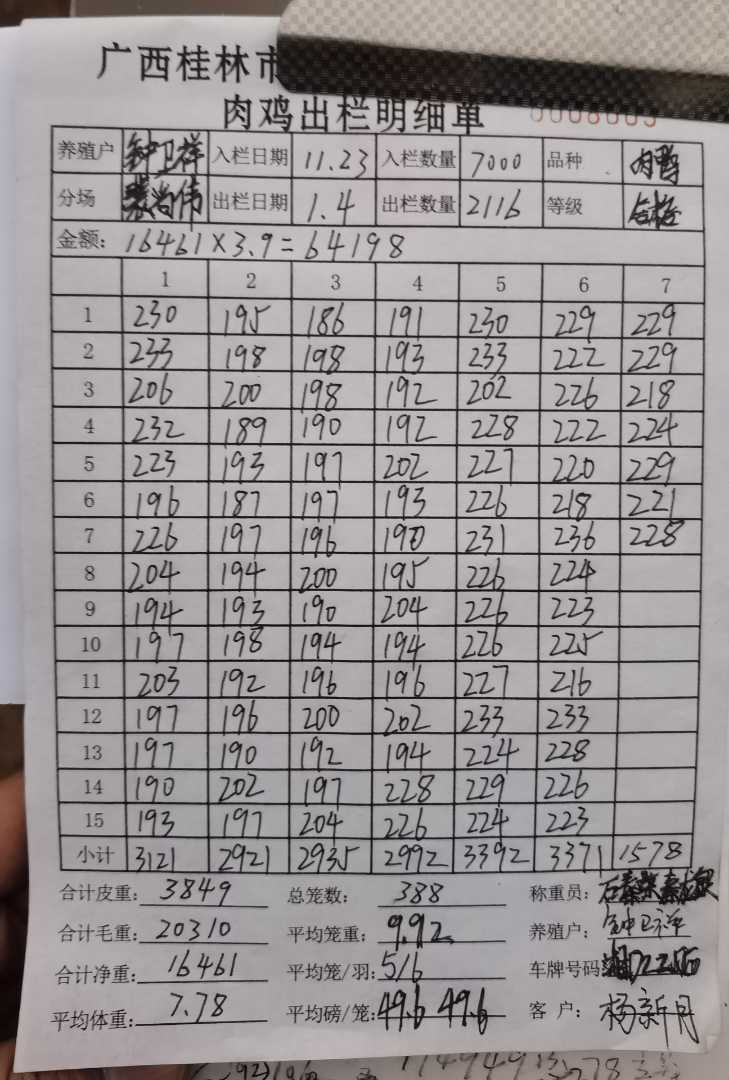 广西桂林市
肉鸡出栏明细单
养殖户 钟卫祥 入栏日期 11.23 入栏数量 7000 品种 肉鸭
分场 尚伟 出栏日期 1.4 出栏数量 2116 等级 合格
金额: 16461×3.9=64198
1 2 3 4 5 6 7
1 230 195 186 191 230 229 229
2 233 198 198 193 233 222 229
3 206 200 198 192 202 226 218
4 232 189 190 192 228 222 224
5 223 193 197 202 227 220 229
6 196 187 197 193 226 218 221
7 226 197 196 190 231 236 228
8 204 194 200 195 226 224
9 194 193 190 204 226 223
10 197 198 194 194 226 225
11 203 192 196 196 227 216
12 197 196 200 202 233 233
13 197 190 192 194 224 228
14 190 202 197 228 229 226
15 193 197 204 226 224 223
小计 3121 2921 2935 2992 3392 3371 1578
合计皮重: 3849 总笼数: 388 称重员:
合计毛重: 20310 平均笼重: 9.92 养殖户: 钟卫祥
合计净重: 16461 平均笼/羽: 5/6 车牌号码
平均体重: 7.78 平均磅/笼: 49.6 49.6 客户: 杨新月